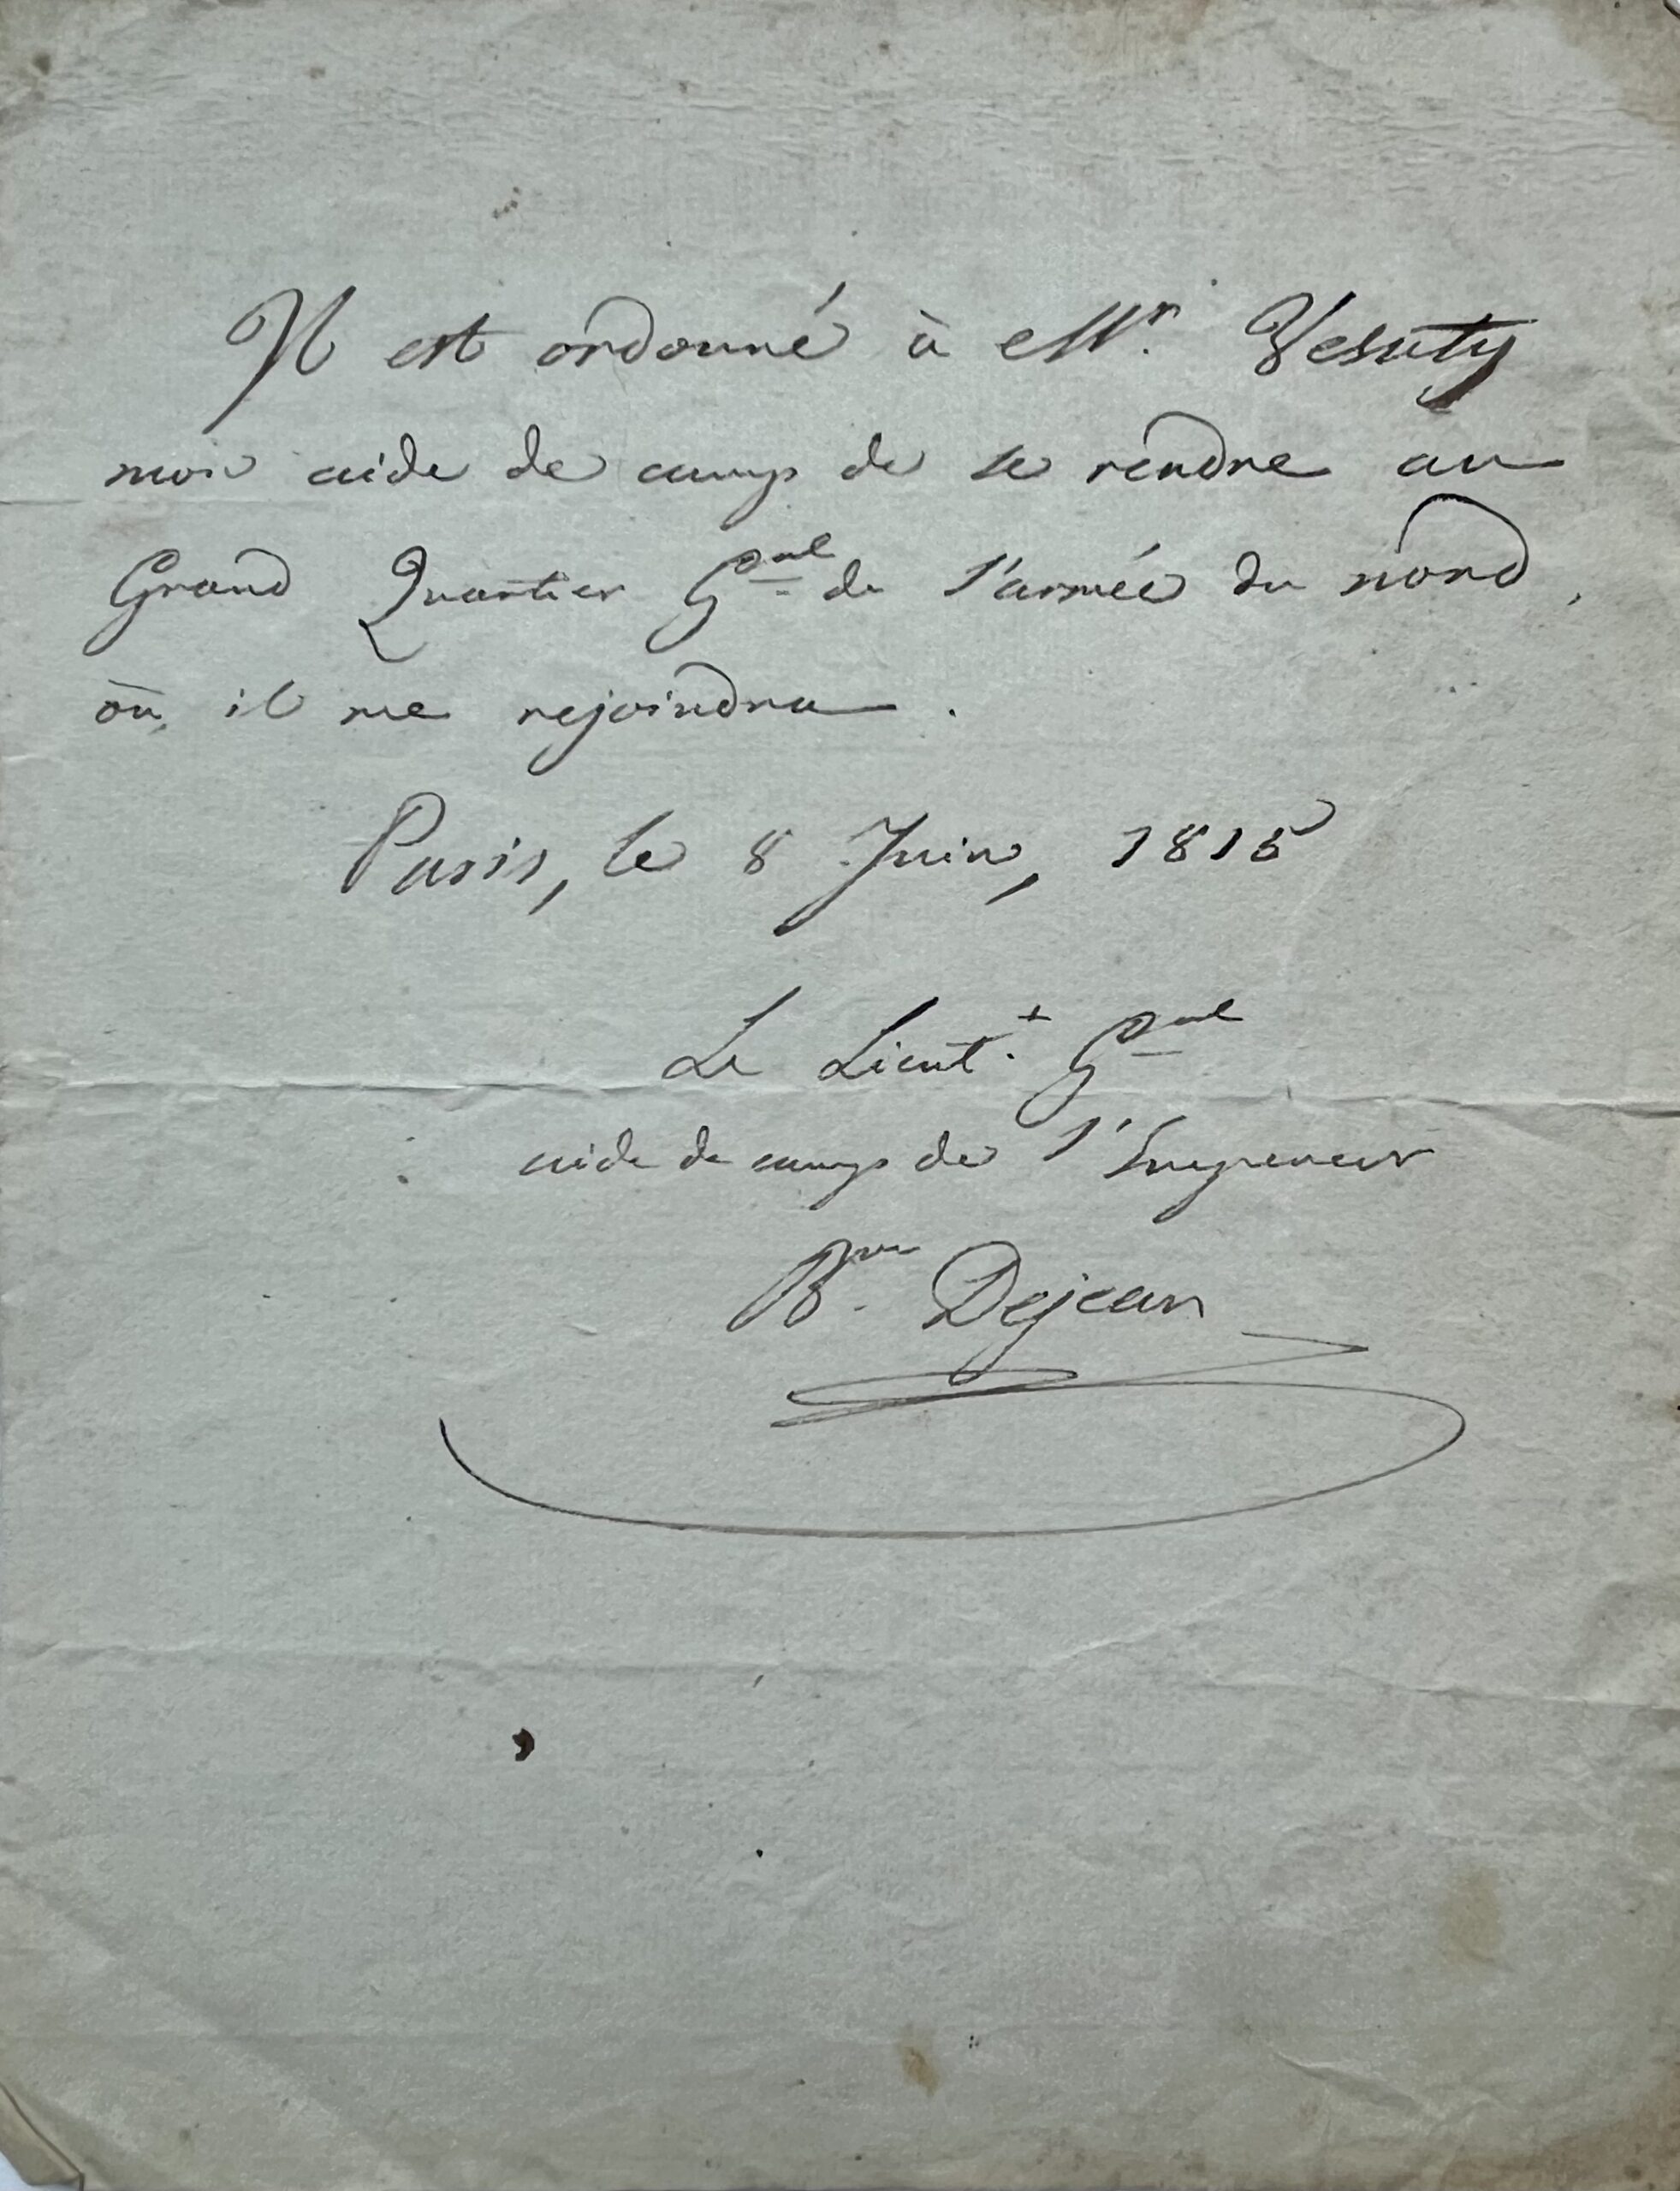 Il est ordonné à Mr. Vesuty
mon aide de camp de se rendre au
Grand Quartier Gal de l'armée du nord,
où il me rejoindra.
Paris, le 8 Juin, 1815
Le Lieut.t Gal
aide de camp de l'Empereur
Bon. Dejean